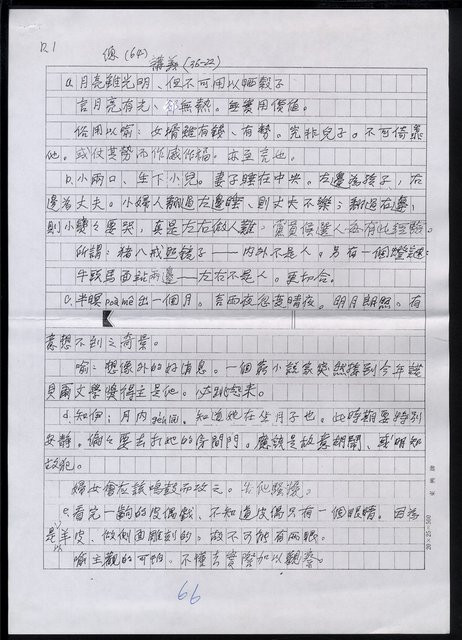 P.1
俗(64) 講義(36-22)
a.月亮雖光明、但不可用以晒穀子
言月亮有光、卻無熱。無實用價值。
俗用以喻:女婿雖有錢、有勢。究非兒子。不可倚靠
他。或仗其勢而作威作福。亦至完也。
b.小兩口、生下小兒。妻子睡在中央。左邊為孩子,右
邊為丈夫。小婦人翻過左邊睡、則丈夫不樂;翻過右邊,
則小孌々要哭,真是左右做人難。
所謂:豬八戒照鏡子——內外不是人。另有一個
牛頭馬面站兩邊——左右不是人。更切合。
c.半暝 出一個月。言雨夜忽變晴夜。明月朗照。有
意想不到之奇景。
喻:想像外的好消息。一個 小說家突然接到今年諾
貝爾文學獎得主是他。 跳起來。
d.知伊:月內 間。知道她在坐月子也。此時期要特別
安靜。偏々要去 她的房間門。應該是故意胡鬧、或明知
故犯。
婦女會應該鳴鼓而攻之。
e.看完一齣的皮偶戲、不知道皮偶只有一個眼睛。因為
是羊皮、做側面雕刻的。故不可能有兩眼。
喻主觀的可怕。不懂去實際加以觀察。
66
20×25=500